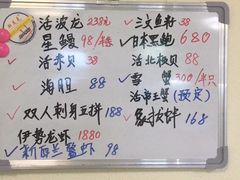 活波龙 238元
星鳗 98/条
活赤贝 38
海胆 88
双人刺身豆拼 188
伊势龙虾 1880
新西兰鳌虾 98
三文鱼籽 38
日本黑鲍 680
活北极贝 88
雪蟹 300/半只
活帝王蟹(预定)
象拔蚌 168